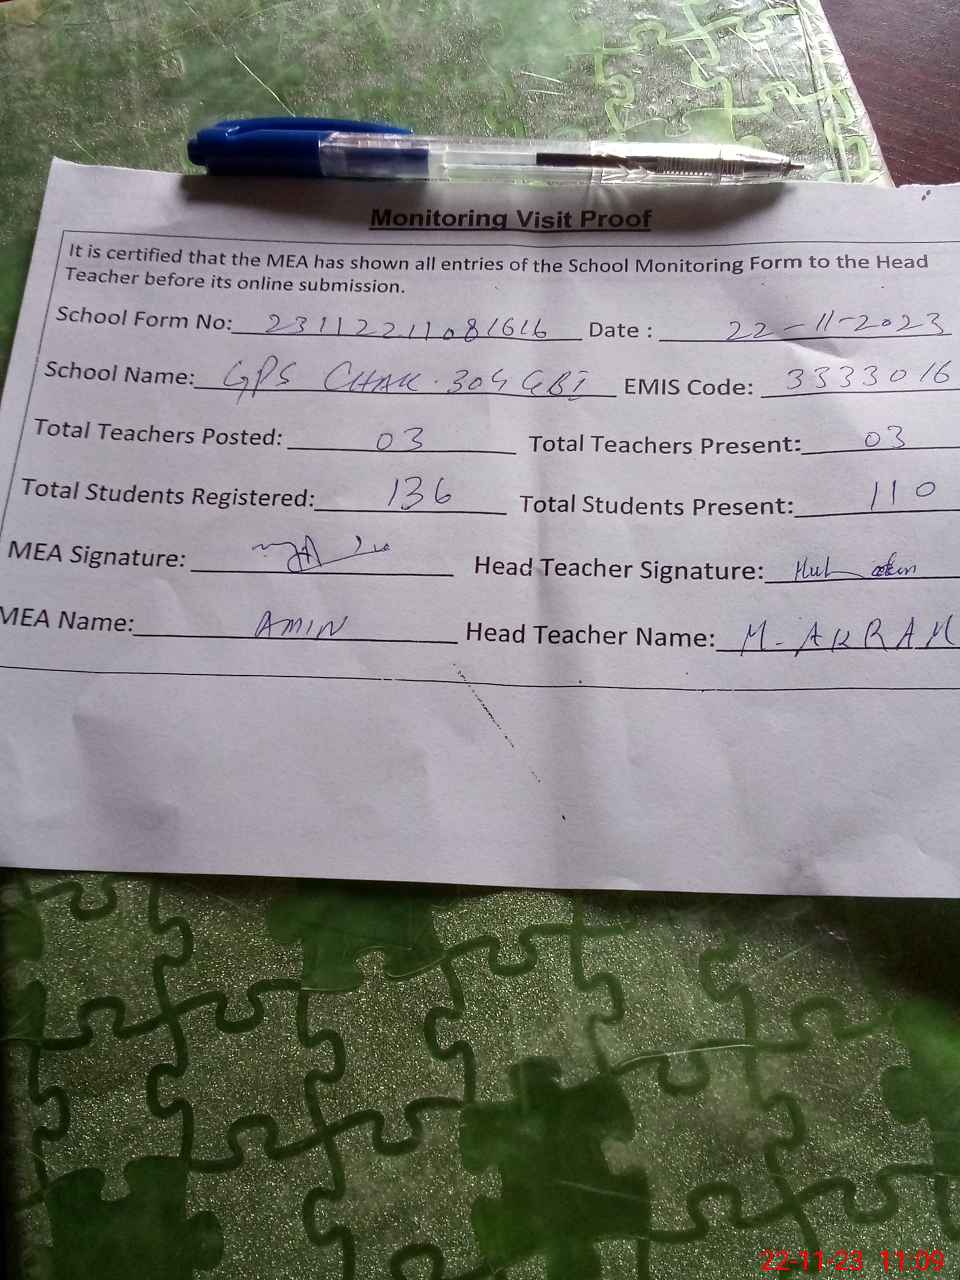 Monitoring Visit Proof
It is certified that the MEA has shown all entries of the School Monitoring Form to the Head
Teacher before its online submission.
School Form No: 23112211081616 Date : 22-11-2023
School Name: GPS CHAK. 304 GBI EMIS Code: 3333016
Total Teachers Posted: 03 Total Teachers Present: 03
Total Students Registered: 136 Total Students Present: 110
MEA Signature: Head Teacher Signature:
MEA Name: AMIN Head Teacher Name: M-AKRAM
22-11-23 11:09